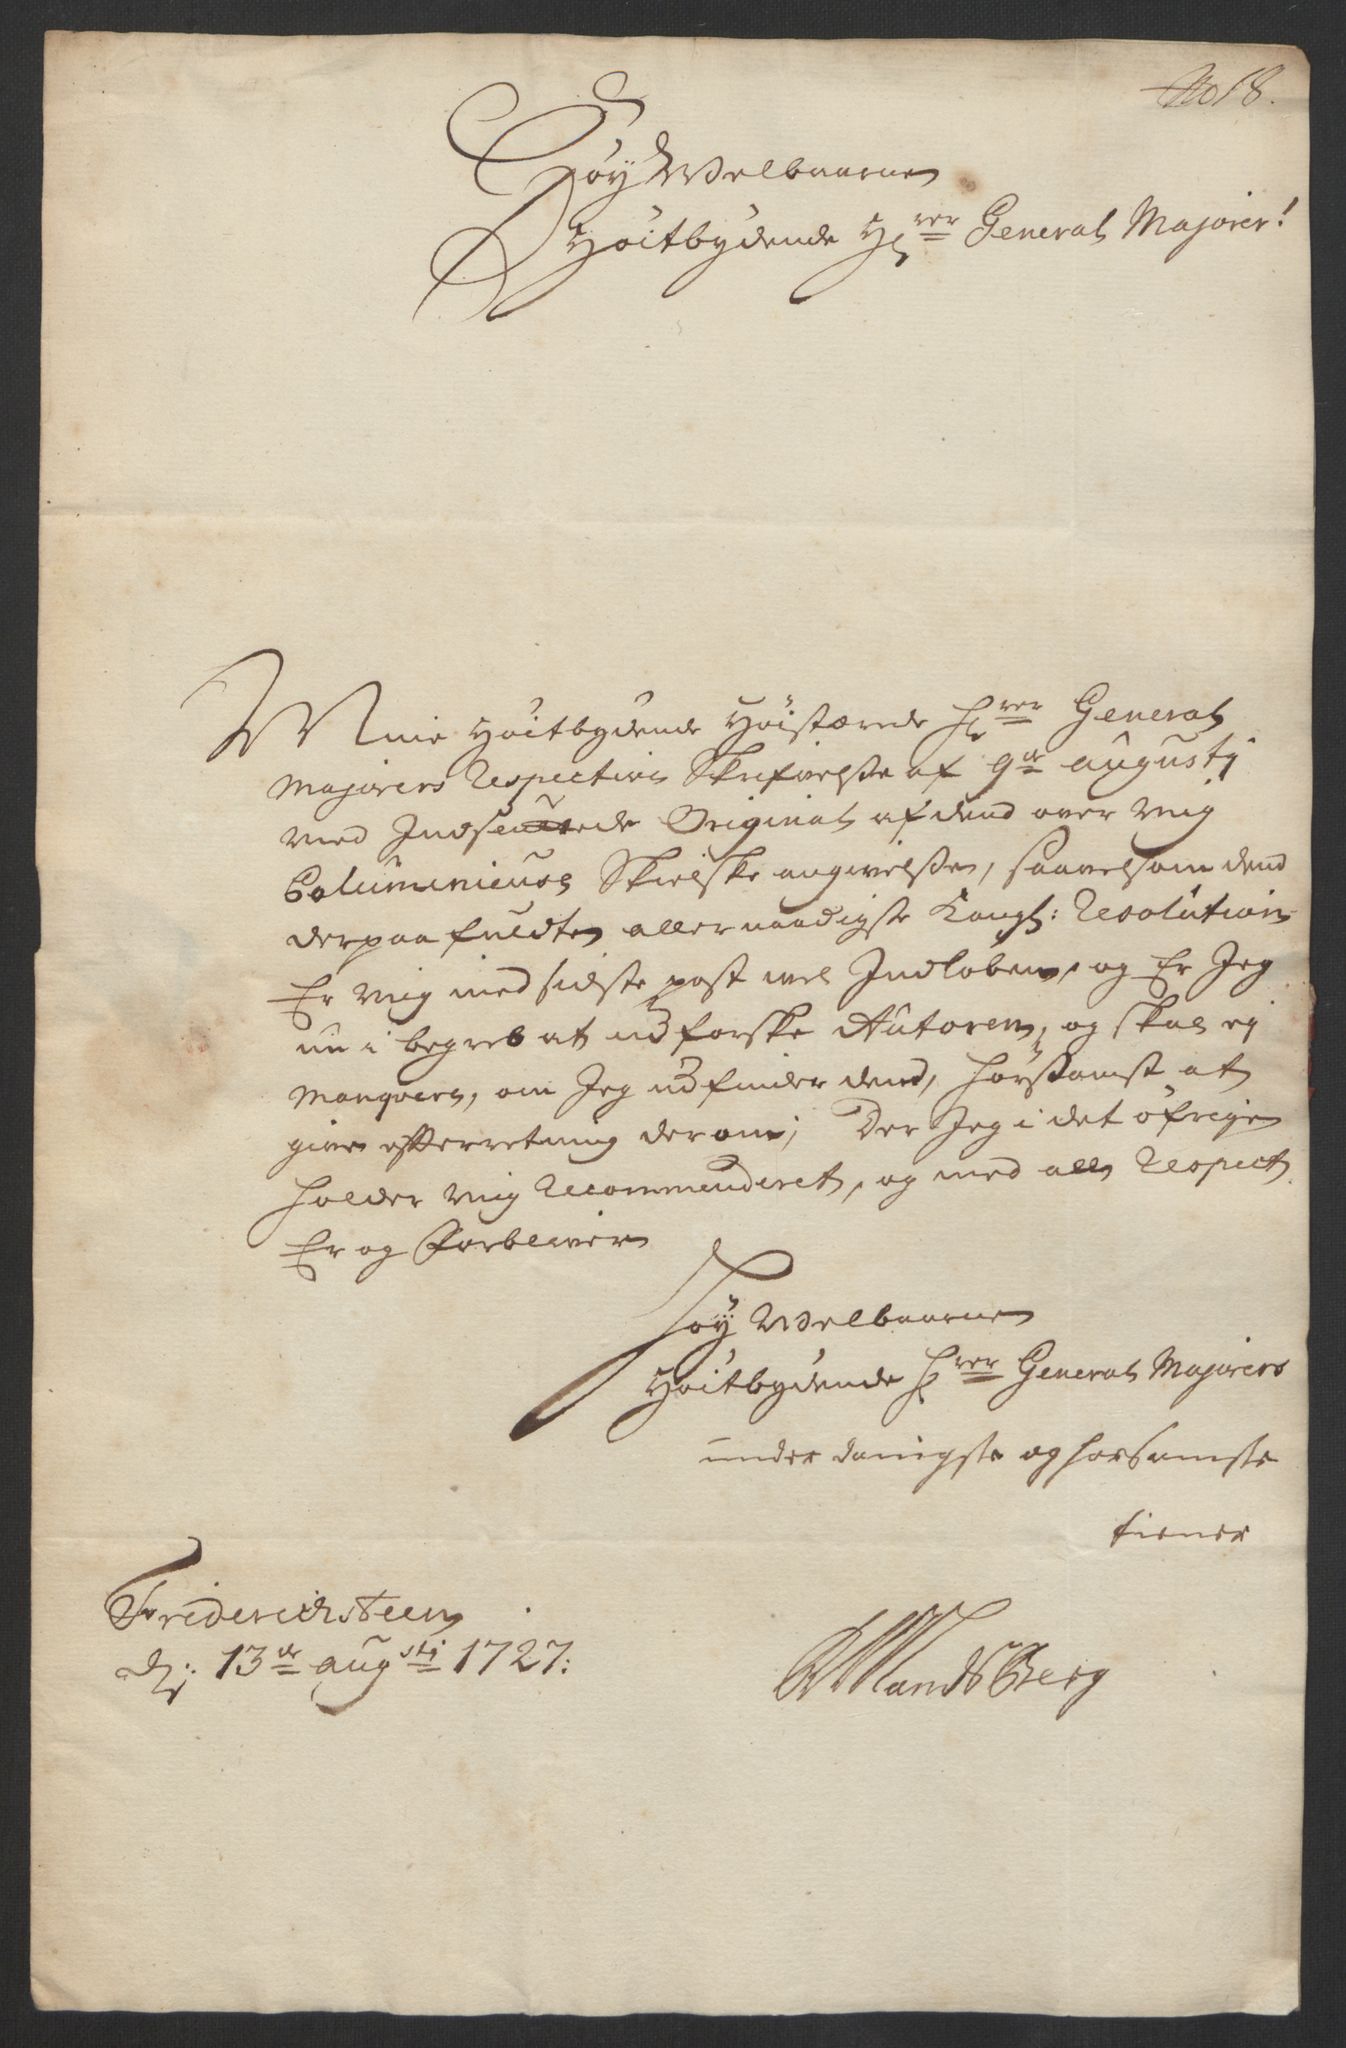 No 18.
Høy Welbaarne
Høitbydende Hrer General Majorer!
Mine Høitbydende Høistærede Hrer General
Majorers Respective Skrifwelse af 9de augustj
med Indsendte Original af dend over mig
Calumnieuse Skielske angivelse, saavelsom dend
derpaa fuldte allernaadigste Kongl: Resolution
Er mig med sidste post wel Indløben, og Er Jeg
nu i begreb at udforske Autoren, og skal ej
manqvere, om Jeg udfinder dend, hørsamst at
give efterretning derom; Der Jeg i det øfrige
holder mig Recommenderet, og med all Respect
Er og Forblewer
Høy Welbaarne
Høitbydende Hrer General Majorers
underdanigste og hørsamste
tiener
Friderichsteen
d: 13de augstj 1727:
Landsberg